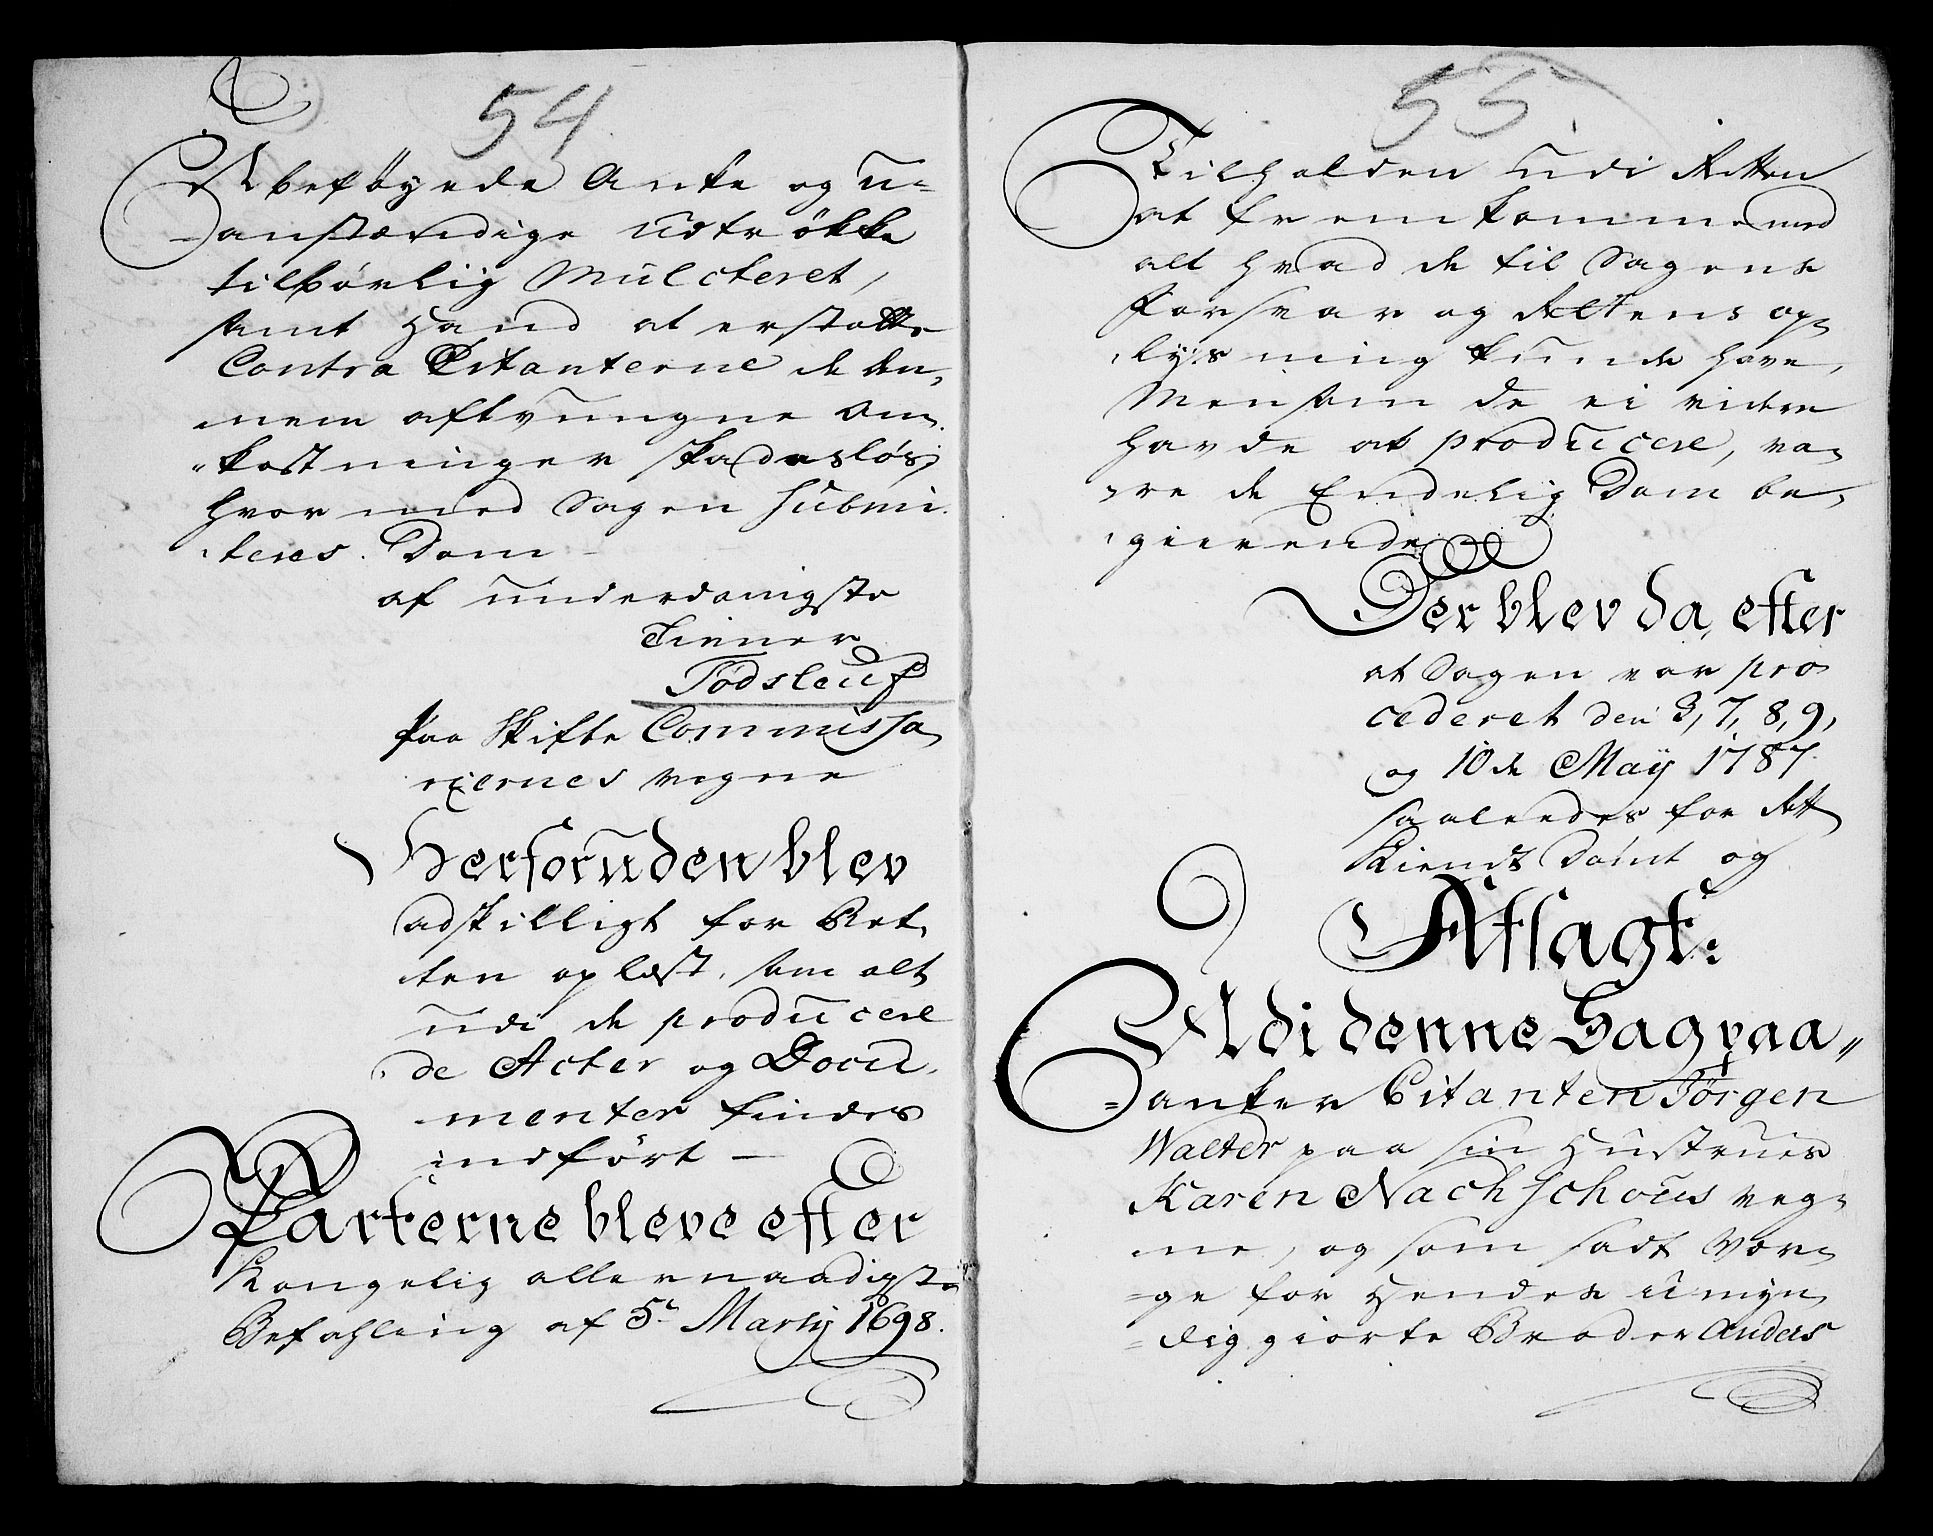 54
Ubeføyede Anke og u=
=anstændige udtrøkke
tilbørlig Mulcteret,
samt Hand at erstatte
Contra Citanterne de den,
nem aftvungne Om,
"kostninger skadesløs,
hvormed Sagen submi,
,teres. Dom –
af underdanigste
Tiener
Todsleuf
paa Skifte Commissa,
riernes vegne
Herforuden blev
adskilligt for Ret,
ten oplæst, som alt
udi de producere
,de Acter og Docu,
menter findes
indført –
Parterne bleve efter
Kongelig allernaadigste
Befahling af 5te Martij 1698.
55.
Tilholden udi Retten
at fremkomme med
alt hvad de til Sagens
Forsvar og Rettens op,
,lysning kunde have,
Men som de ei videre
havde at producere, va,
,re de Endelig Dom be,
,gierende.
Der blev da, efter
at Sagen var pro
cederet den 3, 7, 8, 9,
og 10de Maÿ 1787.
saaledes for Ret
Kiendt Dømt og
Afsagt:
Udi denne Sag paa"
=anker Citanten Jørgen
Walter paa sin Hustrues
Karen Nachschous veg=
ne, og som sadt Vær=
=ge for Hendes umyn,
=dig giorte Broder Anders